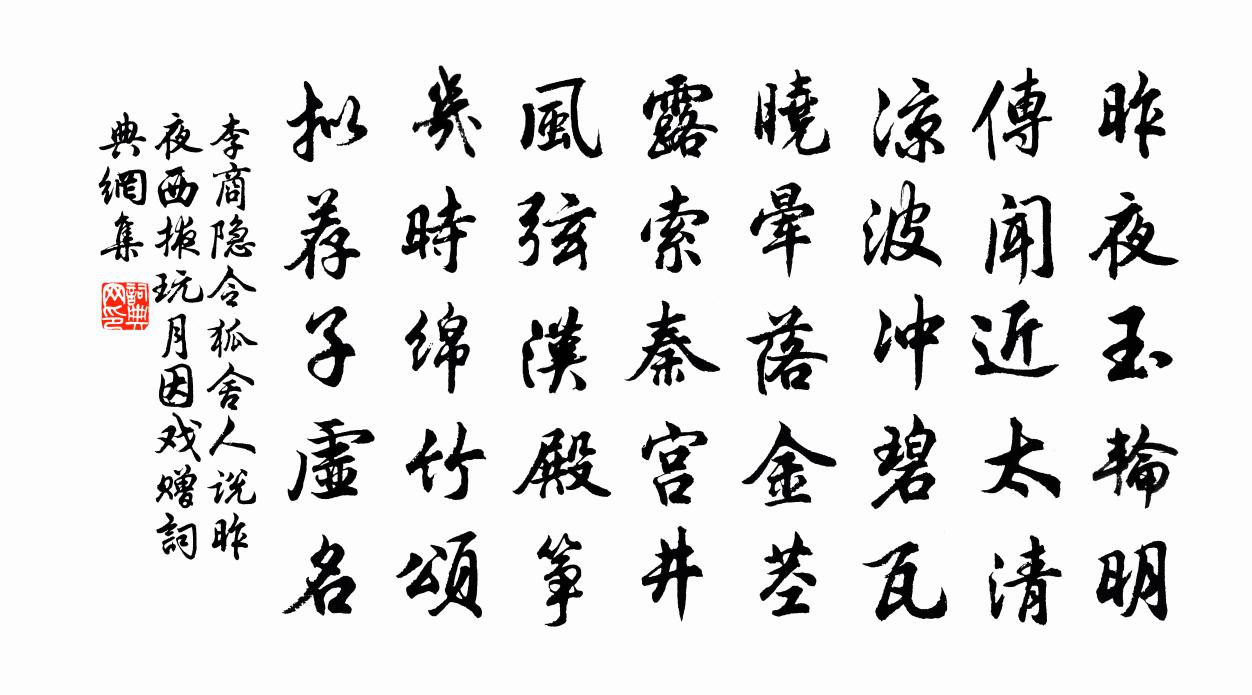 昨夜玉輪明
傳聞近太清
凉波冲碧瓦
曉暈落金莖
露索秦宫井
風弦漢殿筝
幾時綿竹頌
拟荐子虛名
李商隐令狐舍人说昨
夜西掖玩月因戏赠詞
典網集
詞典
网印